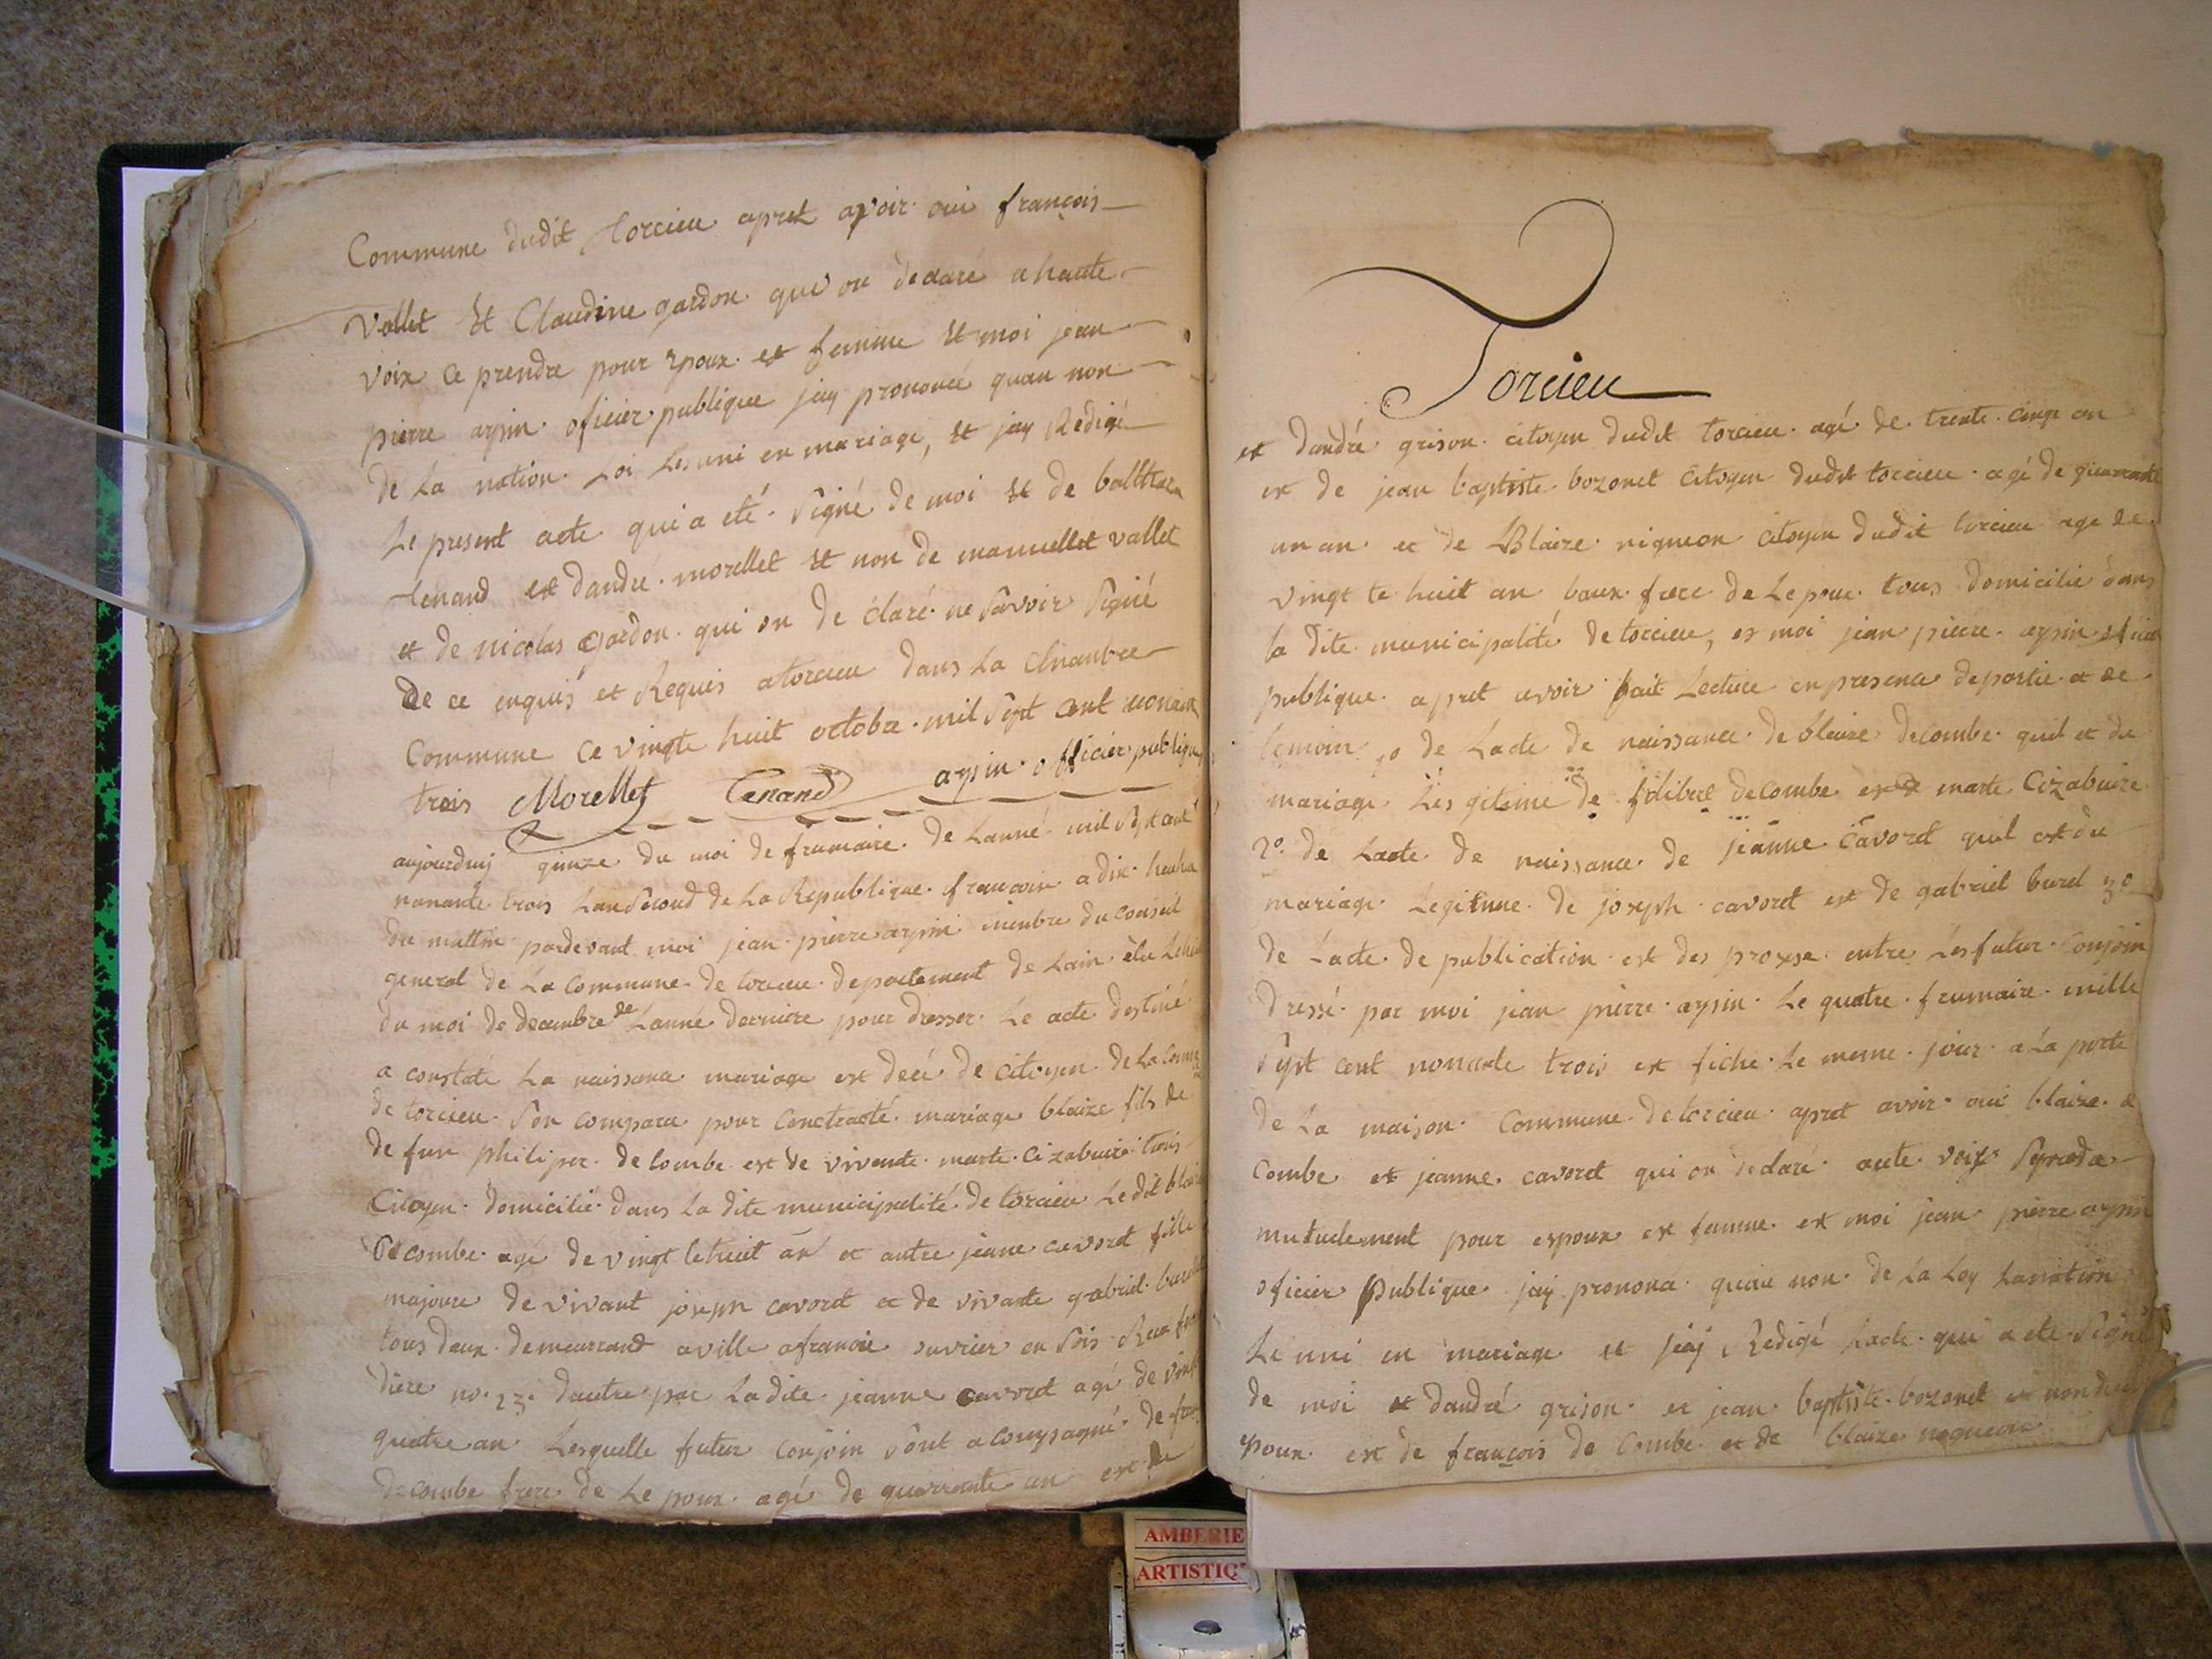 Commune dudit torcieu apret avoir oui françois
vallet Et Claudine gardon qui on dedaré a haute
voix ce prendre pour Epoux et femme Et moi jean
pierre aysin oficier publique jay prononcé quau non
de La nation Loi Les uni en mariage, Et jay Redigé
Le present acte qui a eté signé de moi Et de balthaza
tenand et dandré morellet Et non de manuellet vallet
et de nicolas gardon qui on de claré ne savoir signé
de ce enquis et Requis a torcieu dans La Chambre
Commune ce vingte huit octobre mil sept cent nonante
trois Morellet Tenand aysin officier publique
aujourduij quinze du moi de frumaire de Lanné mil sept cent
nonante trois Lan second de La Republique francoise a dix heuha
du mattin pardevant moi jean pierre aysin menbre du conseil
general de La Commune de torcieu departement de Lain élu
du moi de decembre de Lanné derniere pour dresser Le acte destiné
a constaté La naissance mariage est decé de citoyen de La Comme
de torcieu son compara pour Conctracté mariage blaize fils de
de fun philiper decombe est de vivante marte cizabuire tous
Citoyen domicilié dans La dite municipalité de torcieu Le dit blaize
decombe agé de vingt te huit an et autre jeane cavoret fille
majoure de vivant joseph cavoret et de vivante gabriel burel
tous deux demeurrand a ville afranoie ouvrier en sois
diere no. 23. dautre par La dite jeanne cavoret agé de vingt
quatre an Lesquelle futur conjoin sont a compagné de
decombe frere de Le poux agé de quarrante an est de
Torcieu
et dandré grison citoyen dudit torcieu agé de trente cinqe an
et de jean baptiste bozonet citoyen dudit torcieu agé de quarrante
un an et de Blaize nigueon citoyen dudit torcieu age de
vingt te huit an baux frere de Le poux tous domicilié dans
la dite municipalité de torcieu, et moi jean pierre aysin oficier
publique apret avoir fait Lecture en presence de partie et de
temoin 1o de Lacte de naissance de blaize decombe quil et du
mariage Lesgitime de filibre decombe est marte Cizabuire
2o. de Lacte de naissance de jeanne cavoret quil est du
mariage Legitinne de joseph cavoret est de gabriel burel 3o
de Lacte de publication est des promse entre Les futur conjoin
dressé par moi jean pierre aysin Le quatre frumaire mille
sept cent nonante trois est fiche Le meme jour a La porte
de La maison Commune de torcieu apret avoir oui blaize de
Combe et jeanne cavoret qui on dedaré aute voix
mutuelement pour espoux est famme et moi jean pierre aysin
oficier publique jay prononce quau non de La Loy La nation
Le uni en mariage et jay Redigé Lacte qui a ete signé
de moi et dandré grison et jean baptiste bozonet et non de
epoux est de françois de Combe et de blaize nigueon
AMBERIE
ARTISTIQ